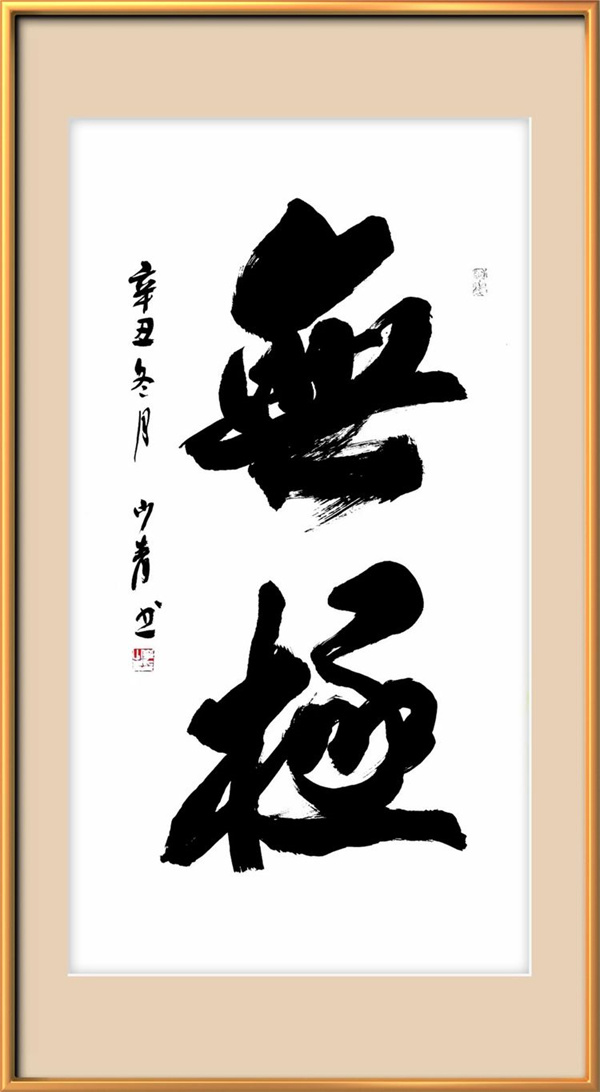 無極
辛丑冬月 少青书